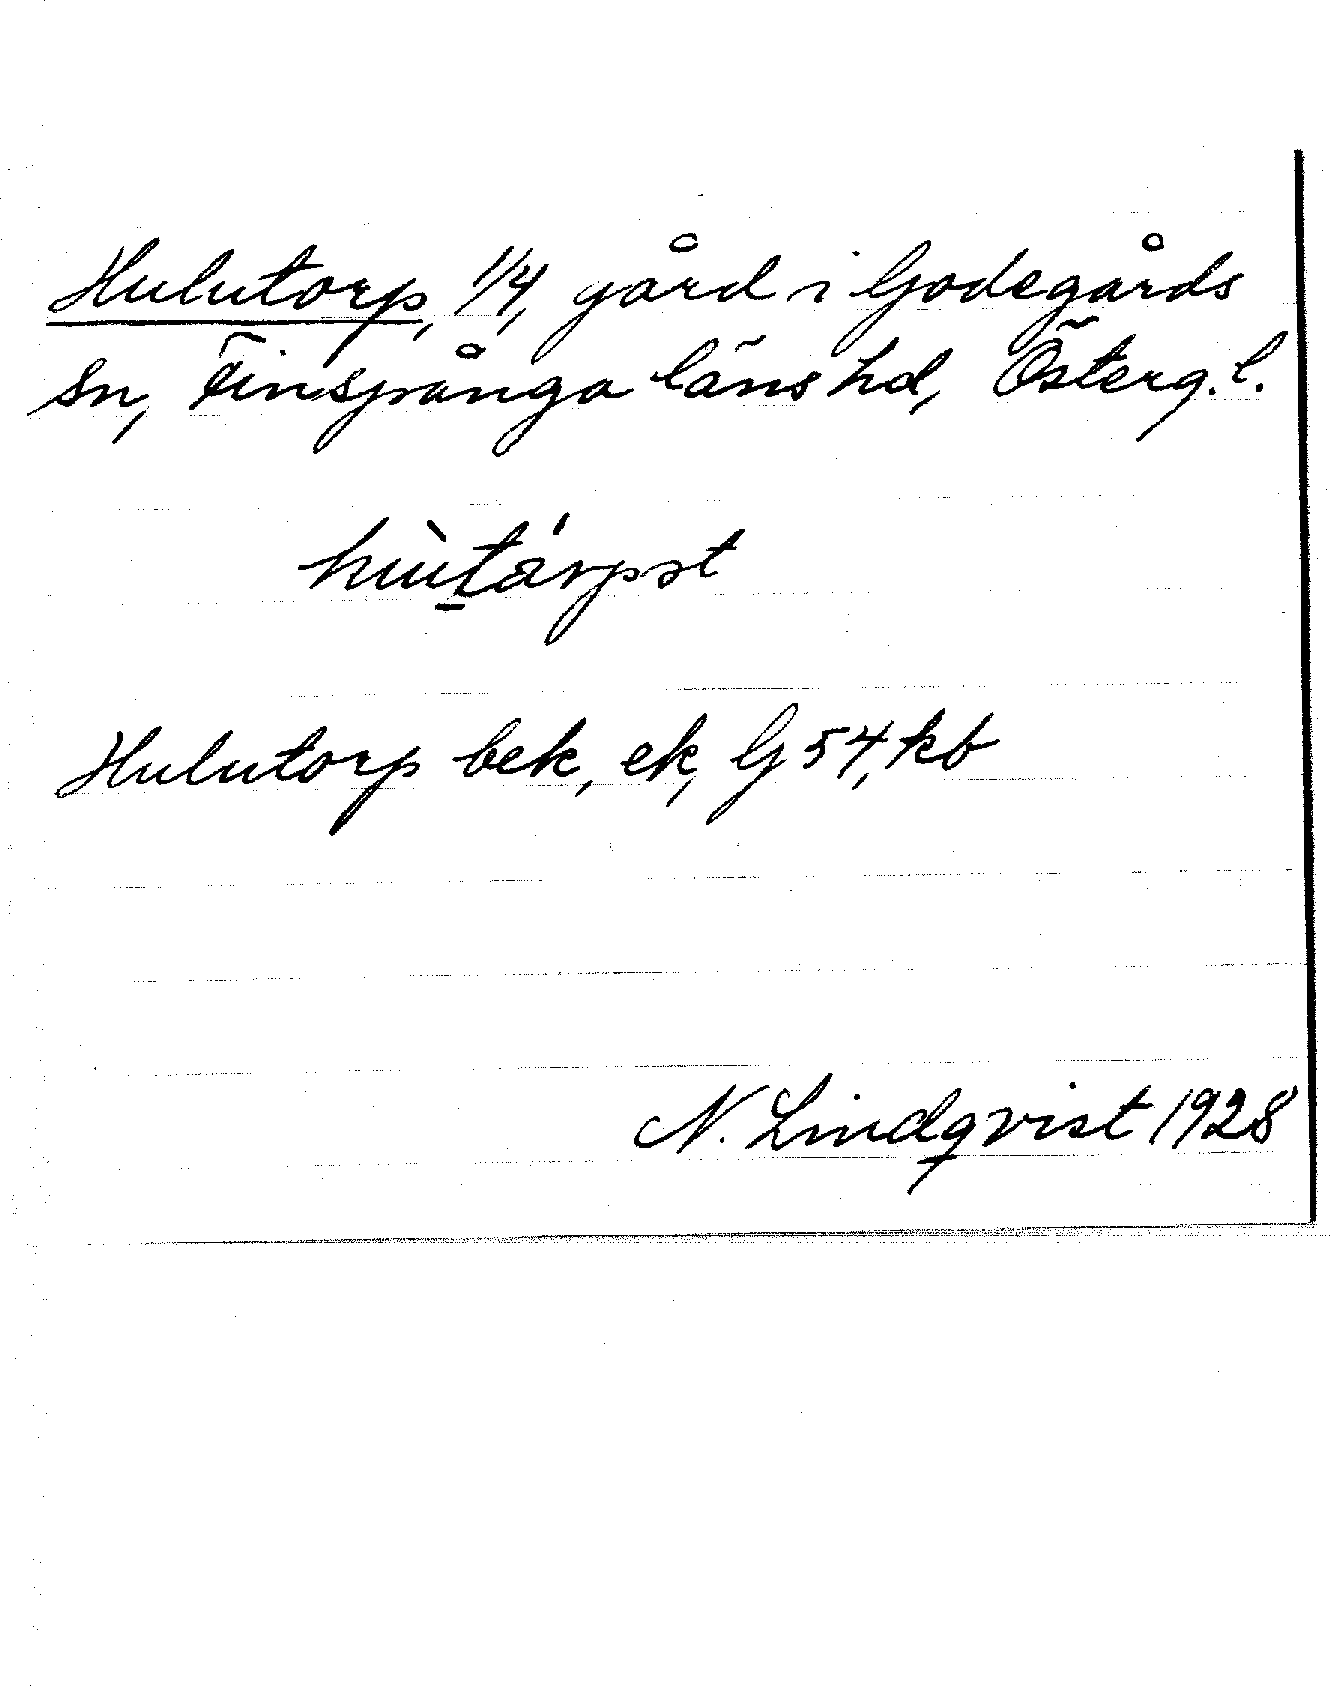 Hulutorp, 1/4, gård i Godegårds
sn, Finspånga läns hd, Österg.l.
Hulutorp bek, ek, G 54, kb
N. Lindqvist 1928